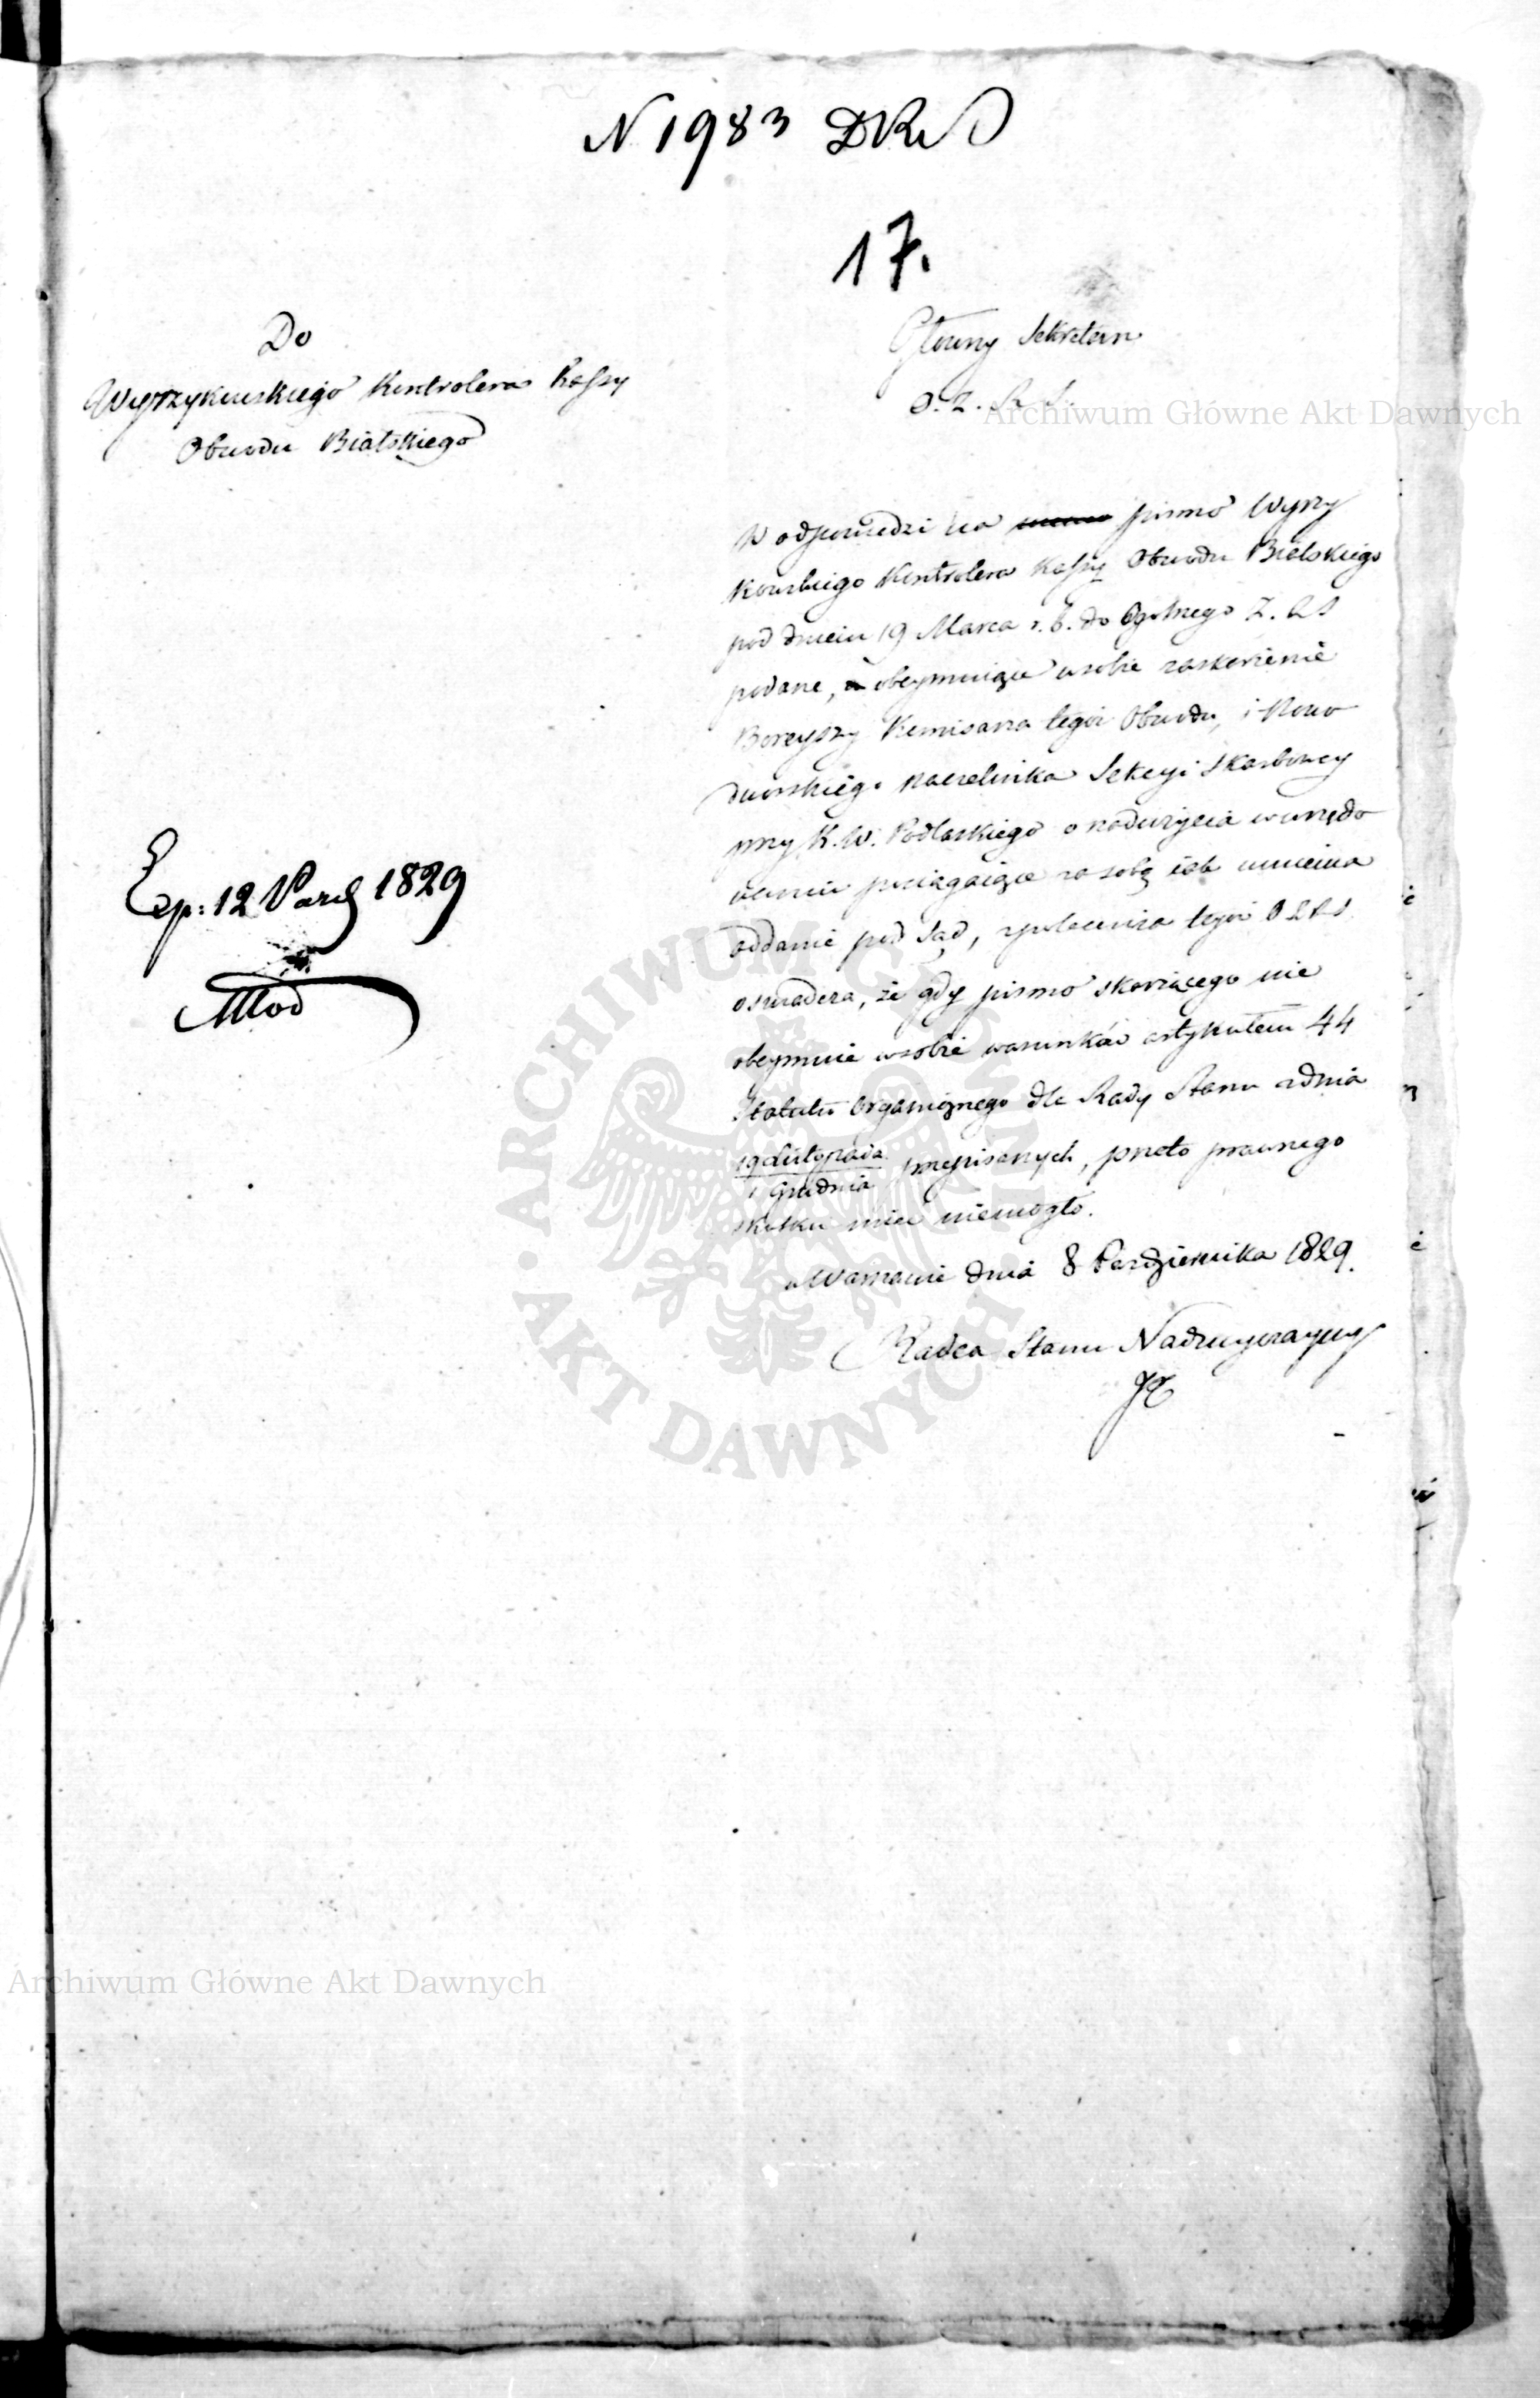 N 1983 DRS
17.
Do
Wyrzykowskiego Kontrolera Kassy
Obwodu Bialskiego
Główny Sekretarz
O. Z. R. S.
Archiwum Główne Akt Dawnych
W odpowiedzi na pismo Wyrzy
kowskiego Kontrolera Kassy Obwodu Bialskiego
pod dniem 19 Marca r. b. do Ogolnego Z. R S
podane, obeymuiące w sobie zaskarżenie
Boreyszy Komisarza tegoż Obwodu, i Nowo
dworskiego Naczelnika Sekcyi Skarbowey
przy K. W. Podlaskiego o nadużycia w urzędo
waniu pociągaiące za sobą
oddanie pod Sąd, z polecenia tegoż O Z R S
oswiadcza, że gdy pismo skarżącego nie
obeymuie w sobie warunków artykułem 44
Statutu Organicznego dla Rady Stanu z dnia
19 Listopada
1 Grudnia przepisanych, przeto prawnego
skutku mieć niemogło.
w Warszawie dnia 8 Pazdziernika 1829.
Radca Stanu Nadzwyczayny
Exp: 12 Paźd 1829
Mod
ARCHIWUM GŁÓWNE
AKT DAWNYCH
Archiwum Główne Akt Dawnych